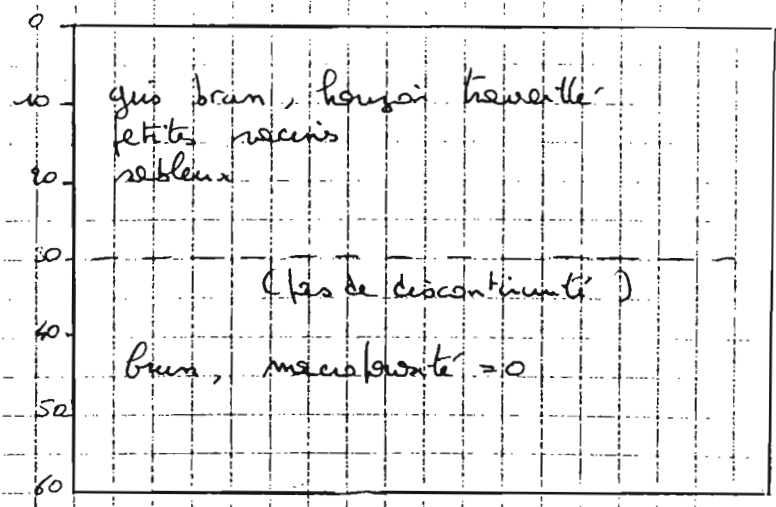 0
10 gris brun, horizon travaillé
petites racines
20 sableux
30
(pas de discontinuité)
40
brun, macroporosité = 0
50
60